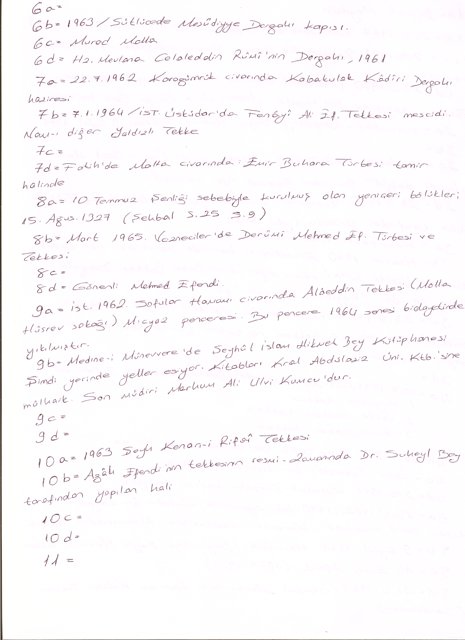 6a=
6b = 1963 / Sütlücede Mesûdiyye Dergahı kapısı.
6c = Murad Molla
6d = Hz. Mevlana Celaleddin Rûmî'nin Dergahı, 1961
7a = 22.7.1962 Karagümrük civarında Kabakulak Kâdiri Dergahı
haziresi
7b = 7.1.1964 / ist. Üsküdar'da Ali Ef. Tekkesi mescidi.
Nam-ı diğer Yaldızlı Tekke
7c =
7d = Fatih'de Molla civarında Emir Buhara Türbesi tamir
halinde
8a = 10 Temmuz Şenliği sebebiyle kurulmuş olan yeniçeri bölükleri
15. Ağus. 1327 (Şehbal s.25 s.9)
8b = Mart 1965. Vezneciler'de Derûni Mehmed Ef. Türbesi ve
Tekkesi
8c =
8d = Gönenli Mehmed Efendi.
9a = ist. 1962 Sofular Hamamı civarında Alâeddin Tekkesi (Molla
Hüsrev sokağı) penceresi. Bu pencere 1964 senesi bidayetinde
yıkılmıştır.
9b = Medine-i Münevvere'de Şeyhül islam Hikmet Bey Kütüphanesi
Şimdi yerinde yeller esiyor. Kitabları Kral Abdülaziz Üni. Ktb.'sine
mülhak. Son müdiri Merhum Ali Ulvi Kurucu'dur.
9c =
9d =
10a = 1963 Şeyh Kenan-i Rifai Tekkesi
10b = Efendi'nin tekkesinin resmi. Zamanında Dr. Suheyl Bey
tarafından yapılan hali
10c =
10d =
11 =